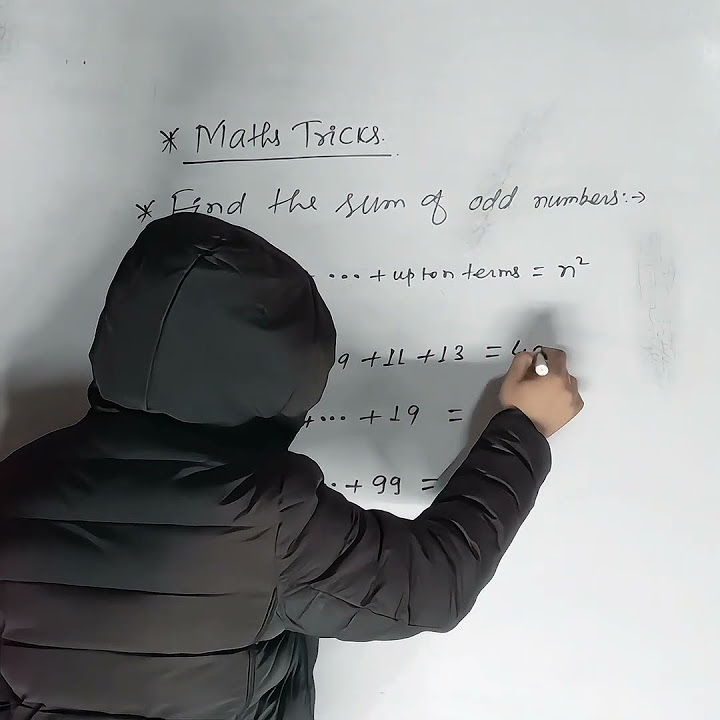 * Maths Tricks.
* Find the sum of odd numbers:->
... + upto n terms = n²
9 + 11 + 13 = 49
+ ... + 19 =
.. + 99 =